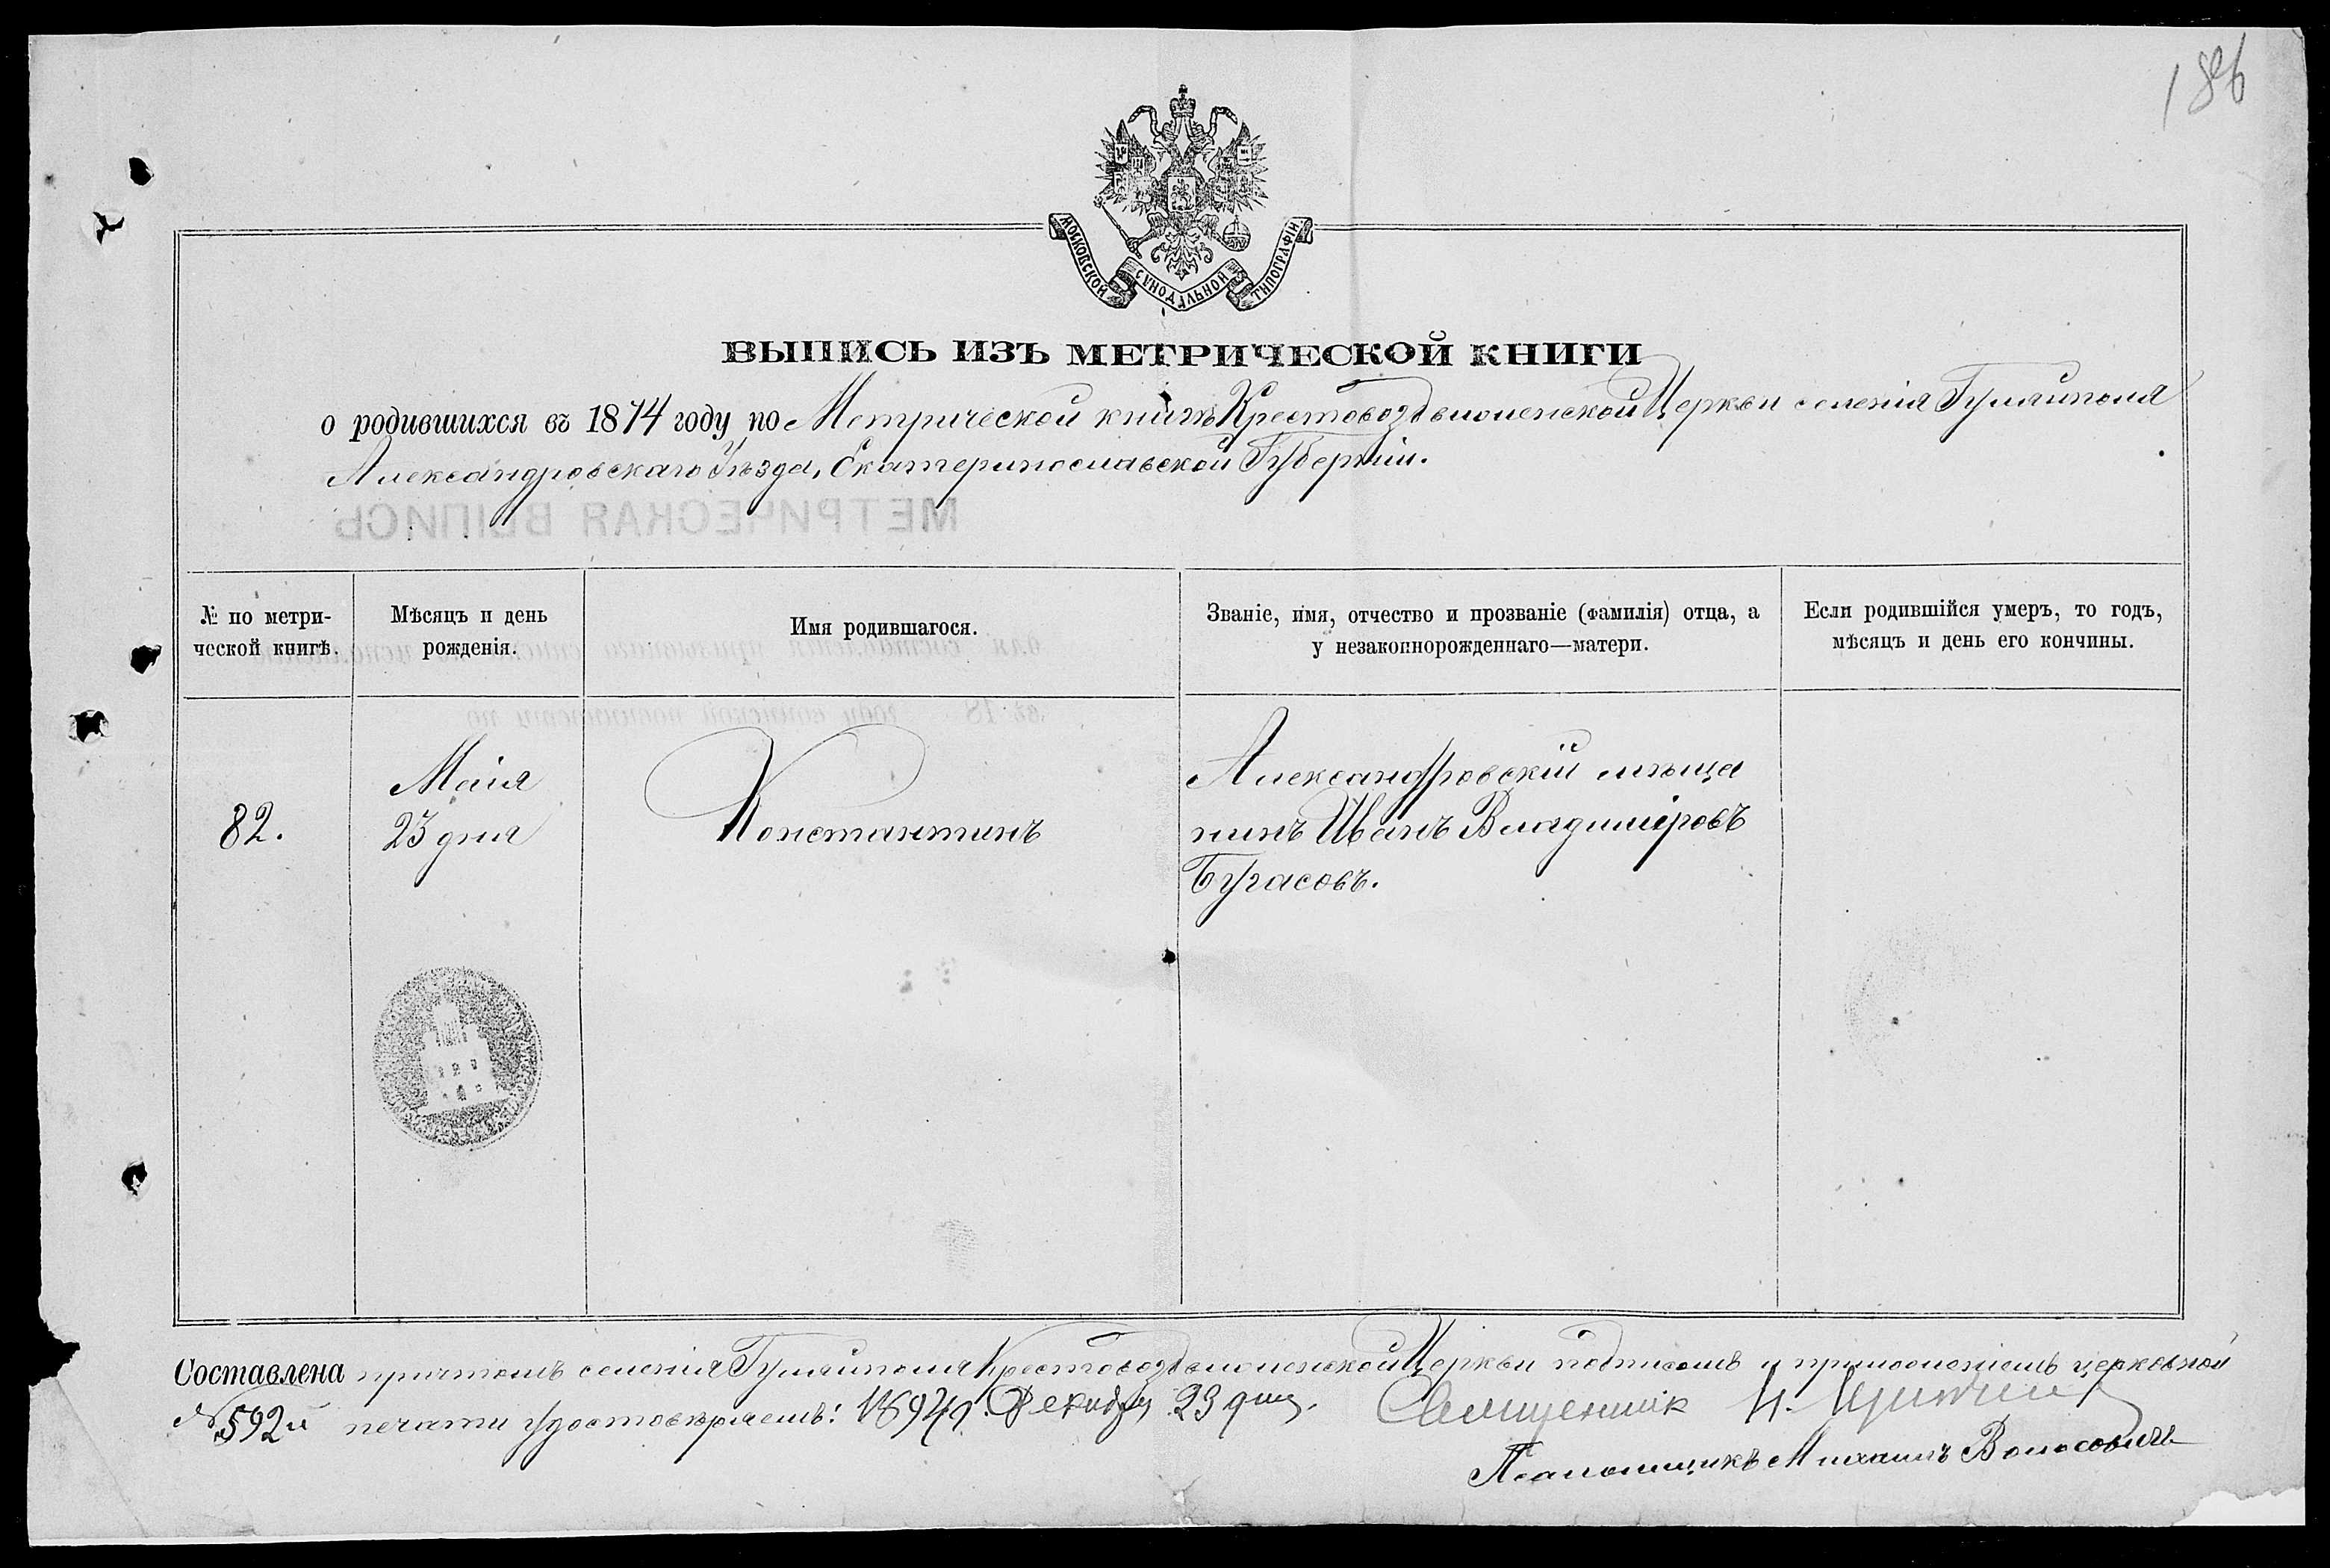 186
МОСКОВСКОЙ СѴНОДАЛЬНОЙ ТИПОГРАФІИ
ВЫПИСЬ ИЗЪ МЕТРИЧЕСКОЙ КНИГИ
о родившихся въ 1874 году по Метрической книгѣ Крестовоздвиженской Церкви селенія Гуляйполя
Александровскаго Уѣзда, Екатеринославской Губерніи.
МЕТРИЧЕСКАЯ ВЫПИСЬ
№ по метри-
ческой книгѣ.
Мѣсяцъ и день
рожденія.
Имя родившагося.
Званіе, имя, отчество и прозваніе (фамилія) отца, а
у незаконнорожденнаго—матери.
Если родившійся умеръ, то годъ,
мѣсяцъ и день его кончины.
82.
Маія
23 дня
Константинъ
Александровскій мѣща
нинъ Иванъ Владиміровъ
Бугасовъ.
Составлена причтомъ селенія Гуляйполя Крестовоздвиженской Церкви подписомъ и приложеніемъ церковной
№ 592й печати удостовѣряемъ: 1894 г. Декабря 23 дня. Священник Н.
Псаломщикъ Михаилъ Волосовичъ